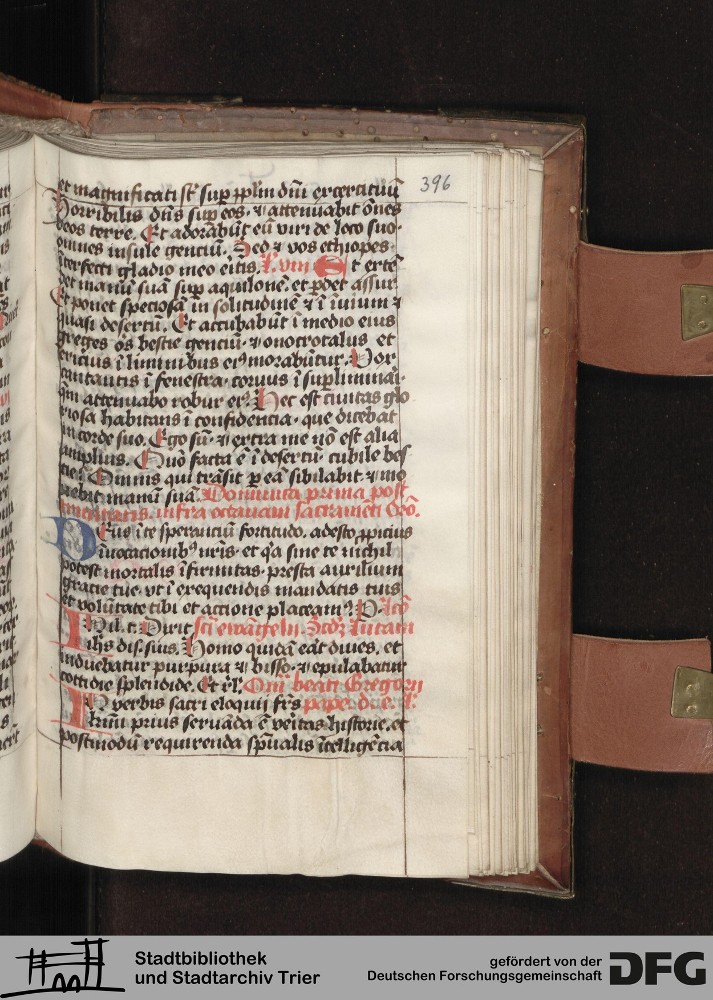 396
et magnificati st̄ sup ꝓplm̄ dn̄i exercituū
Horribilis dn̄s sup eos · ⁊ attenuabit ōnes
deos terre. Et adorabūt eū viri de loco suo ·
omnes insule gentiū. Sed ⁊ vos ethiopes ·
īterfecti gladio meo eritis. L. viii Et extē
det manū suā sup aquilonē. et ꝑdet assur
Et ponet speciosā in solitudinē ⁊ ī īuium ⁊
quasi desertū. Et accubabūt ī medio eius
greges ōs bestie gentiū · ⁊ onocrotalus et
ericius ī liminibus eiꝰ morabūtur. Vox
cantantis ī fenestra · coruus ī supliminari ·
qm̄ attenuabo robur eiꝰ. Hec est ciuitas glo
riosa habitans ī confidencia · que dicebat
in corde suo. Ego sū · ⁊ extra me nō est alia
amplius. Quō facta ē ī desertū cubile bes
tie? Omnis qui trāsit ꝑ eā sibilabit · ⁊ mo
uebit manū suā. Dominica prima post
trinitatis. infra octauam sacramēti. Coō.
Deus ī te sperantiū fortitudo. adesto ꝓpicius
īuocacionibꝰ nr̄is · et q̄a sine te nichil
potest mortalis īfirmitas · presta auxilium
gratie tue · vt ī exequendis mandatis tuis
et volūtate tibi et actione placeamꝰ. P. lcō
In il. t. Dixit sc̄i ewāgelii. Scd̄ꝫ Lucam
ih̄s dis. suis. Homo quidā eāt diues. et
induebatur purpura ⁊ bisso · ⁊ epulabatur
cottidie splendide. Et rl̄. Om̄ beati Gregorii
In verbis sacri eloquii fr̄s pape. de e. l.
km̄i prius seruāda ē veritas historie. et
postmodū requirenda sp̄ualis ītelligēcia
Stadtbibliothek
und Stadtarchiv Trier
gefördert von der
Deutschen Forschungsgemeinschaft
DFG